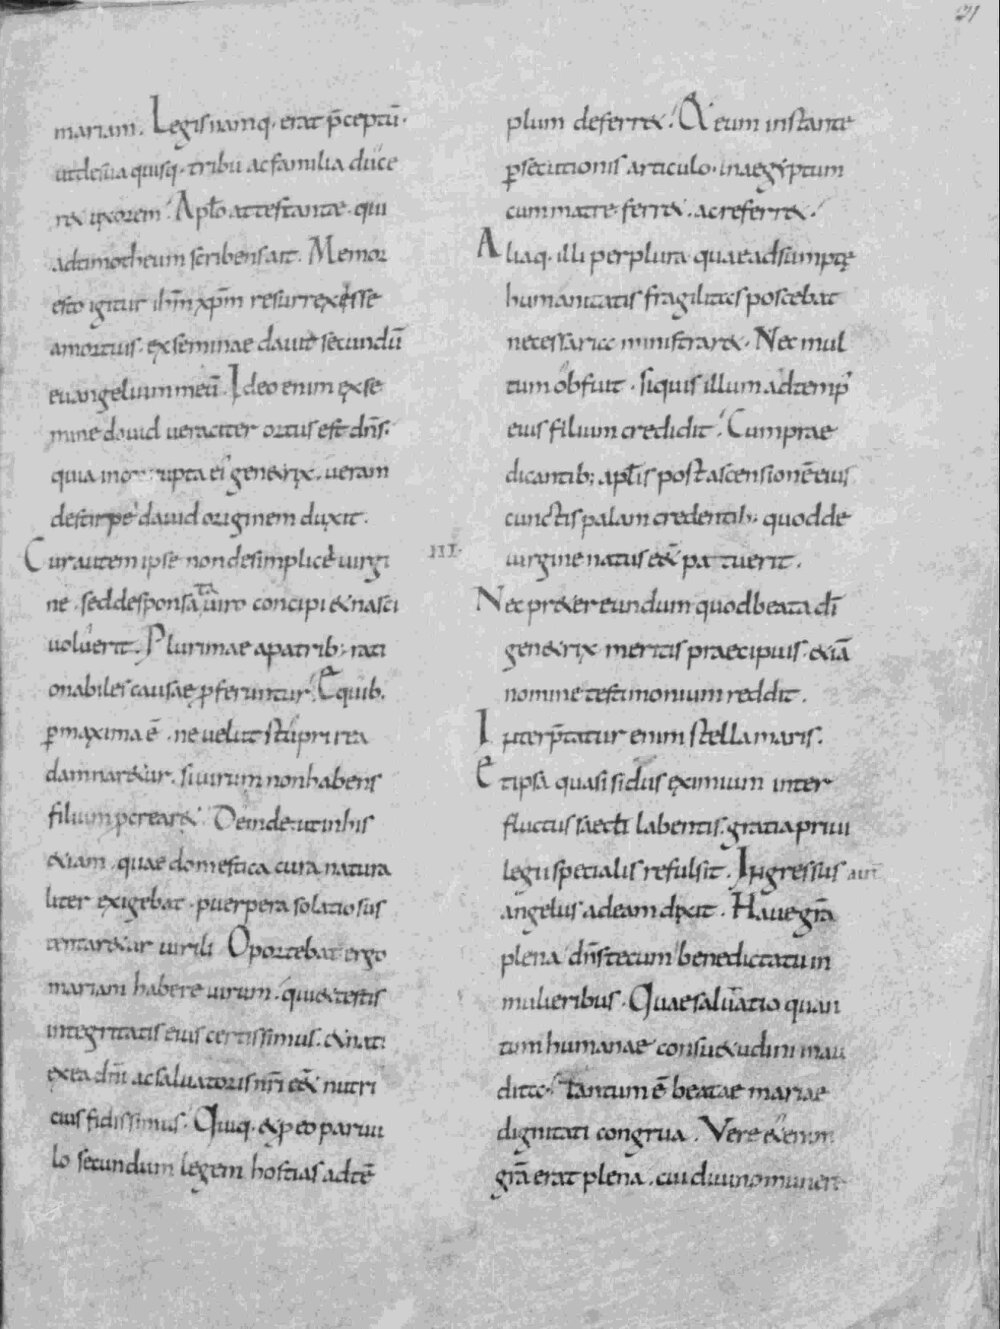 21
mariam. Legis namq· erat p̄ceptū·
ut de sua quisq· tribu ac familia duce
ret uxorem. Apl̄o attestante· qui
ad timotheum scribens ait. Memor
esto igitur ih̄m xp̄m resurrexisse
a mortuis· ex semine dauid secundū
euangelium meū. Ideo enim ex se
mine dauid ueraciter ortus est dn̄s·
quia incorrupta ei genetrix· ueram
de stirpe dauid originem duxit.
Cur autem ipse non de simplice uirgi
ne· sed desponsata uiro concipi & nasci
uoluerit. Plurimae a patrib; rati
onabiles causae ꝓferuntur. E quib;
ꝑmaxima ē· ne uelut stupri rea
damnar&ur· si uirum non habens
filium ꝓcrear&. Deinde ut in his
&iam· quae domestica cura natura
liter exigebat· puerpera solatio sus
tentar&ur uirili. Oportebat ergo
mariam habere uirum· qui & testis
integritatis eius certissimus· & nati
ex ea dn̄i ac saluatoris nr̄i ess& nutri
cius fidissimus. Quiq· & ꝓ eo paruu
lo secundum legem hostias ad tē
plum deferret. & eum instante
ꝑsecutionis articulo· in aegyptum
cum matre ferr&· ac referr&.
III·
Aliaq· illi perplura quae adsumptę
humanitatis fragilitas poscebat
necessaria ministrar&· Nec mul
tum obfuit· si quis illum ad temp'
eius filium credidit. Cum prae
dicantib; apl̄is post ascensionē eius
cunctis palam credentib; quod de
uirgine natus ess& patuerit.
Nec pr&ereundum quod beata dī
gen&rix meritis praecipuis &iā
nomine testimonium reddit.
Interp̄tatur enim stella maris.
Et ipsa quasi sidus eximium inter
fluctus saecl̄i labentis· gratia priui
legii specialis refulsit. Ingressus aut̄
angelus ad eam dixit. Haue gr̄a
plena dn̄s tecum benedicta tu in
mulieribus. Quae salutatio quan
tum humanae consu&udini inau
dita· tantum ē beatae mariae
dignitati congrua. Vere & enim
gr̄a erat plena. cui diuino munere